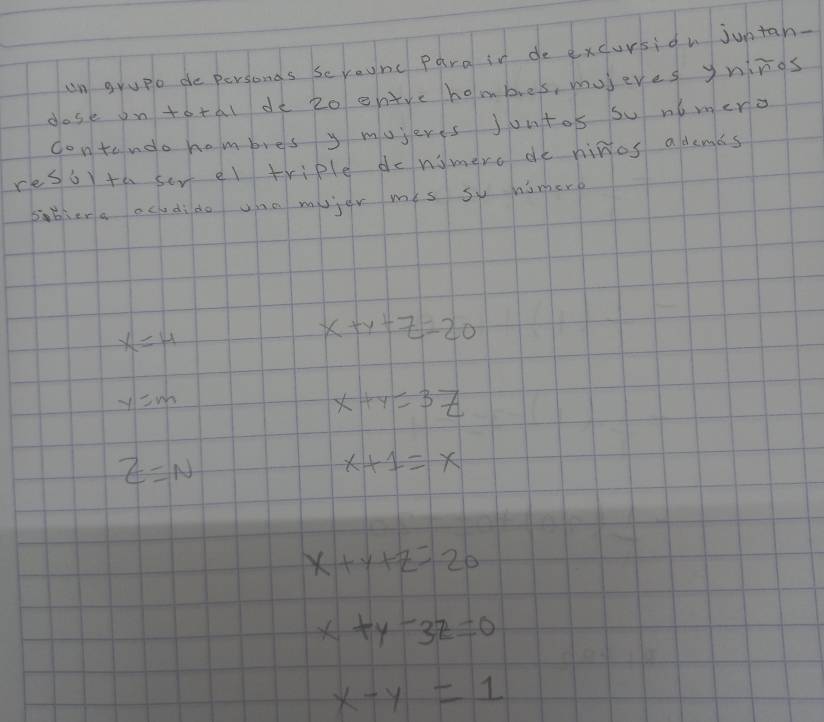 un grupo de personas se reune para ir de excursión juntan-
dose un total de 20 entre hombres, mujeres y niños
contando hombres y mujeres juntos su número
resulta ser el triple de número de niños además
si ubiera acudido una mujer más su número
x=H x+y+z=20
y=m x+y=3z
z=N x+1=x
x+y+z=20
x+y-3z=0
x-y=1